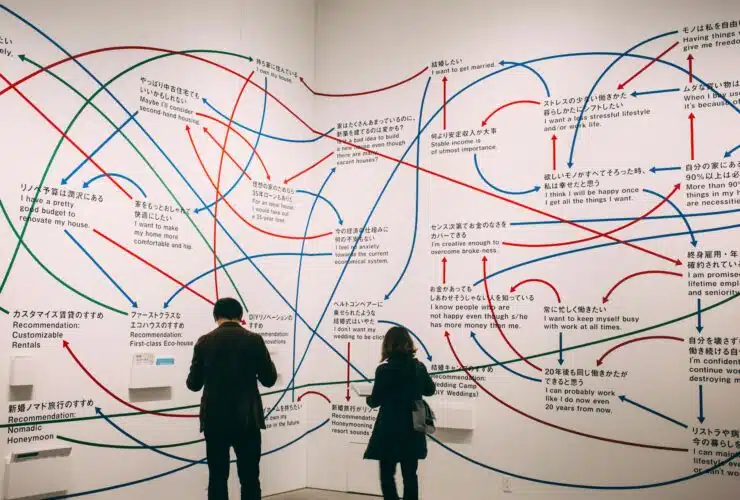 たい
ely.
やっぱり中古住宅でも
いいかもしれない
Maybe I'll consider
second-hand housing.
持ち家に住んでいる
I own my house.
家はたくさんあまっているのに、
新築を建てるのは変かも?
Is it a bad idea to build
a new house even though
there are many
vacant houses?
リノベ予算は潤沢にある
I have a pretty
good budget to
renovate my house.
家をもっとおしゃれで
快適にしたい
I want to make
my home more
comfortable and hip.
理想の家のためなら
35年ローンもありだ
For an ideal house
I would take out
a 35-year loan.
今の経済の仕組みに
何の不安もない
I feel no anxiety
towards the current
economical system.
カスタマイズ賃貸のすすめ
Recommendation:
Customizable
Rentals
ファーストクラスな
エコハウスのすすめ
Recommendation:
First-class Eco-house
DIYリノベーションの
すすめ
ベルトコンベアーに
乗せられたような
結婚式はいやだ
I don't want my
wedding to be
新婚ノマド旅行のすすめ
Recommendation:
Nomadic
Honeymoon
ホームを持ちたい
own my
in the future
新婚旅行がリゾ
Honeymooning
resort sounds
結婚キャンプのすすめ
Recommendation:
Wedding Camp
(DIY Weddings)
結婚したい
I want to get married.
何より安定収入が大事
Stable income is
of utmost importance.
ストレスの少ない働きかた
暮らしかたにシフトしたい
I want a less stressful lifestyle
and/or work life.
欲しいモノがすべてそろった時、
私は幸せだと思う
I think I will be happy once
I get all the things I want.
センス次第でお金のなさを
カバーできる
I'm creative enough to
overcome broke-ness.
お金があっても
しあわせそうじゃない人を知っている
I know people who are
not happy even though s/he
has more money than me.
常に忙しく働きたい
I want to keep myself busy
with work at all times.
20年後も同じ働きかたが
できると思う
I can probably work
like I do now even
20 years from now.
モノは私を自由に
Having things
give me freedom
ムダな買い物は
When I buy use
it's because of
自分の家にある
90%以上は必
More than 90%
things in my h
are necessities
終身雇用・年
確約されている
I am promised
lifetime emplo
and seniority
自分を壊さず
働き続ける自
I'm confident
continue wo
destroying m
リストラや病
今の暮らしを
I can maint
lifestyle eve
or can't wo